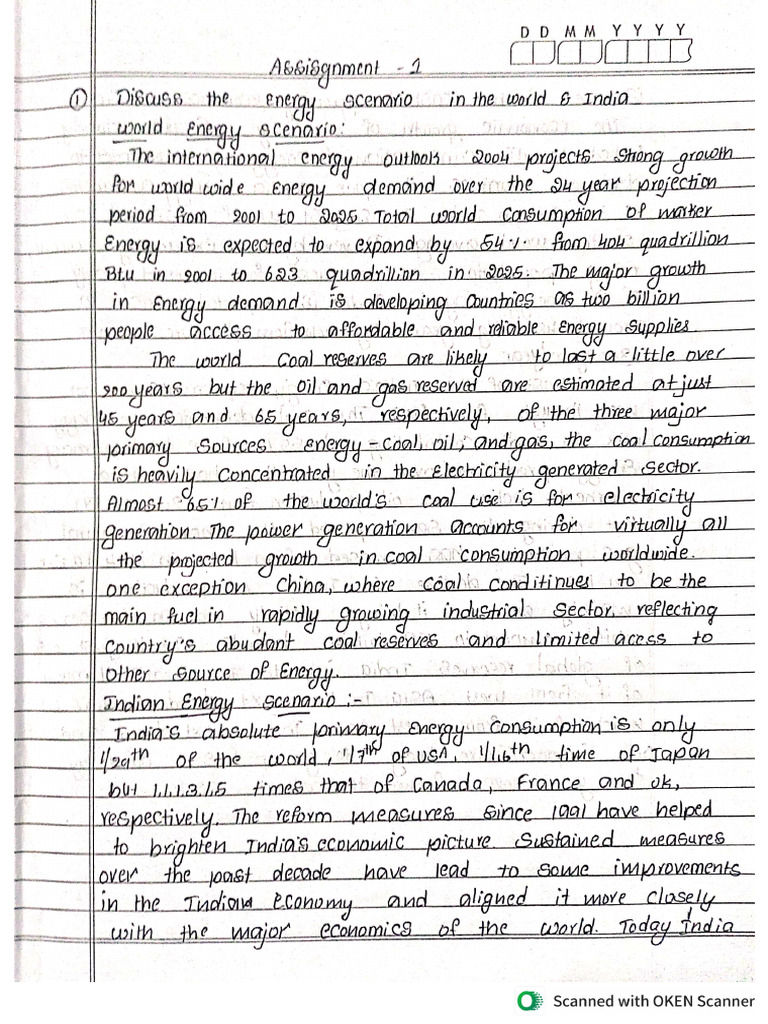 D D M M Y Y Y Y
Assignment - 1
① Discuss the energy scenario in the world & India
World Energy scenario:
The international energy outlook 2004 projects strong growth
for world wide energy demand over the 24 year projection
period from 2001 to 2025. Total world consumption of marker
Energy is expected to expand by 54% from 404 quadrillion
Btu in 2001 to 623 quadrillion in 2025. The major growth
in Energy demand is developing countries as two billion
people access to affordable and reliable Energy supplies
The world coal reserves are likely to last a little over
200 years but the oil and gas reserved are estimated at just
45 years and 65 years, respectively, of the three major
primary sources energy - coal, oil, and gas, the coal consumption
is heavily concentrated in the Electricity generated sector.
Almost 65% of the world's coal use is for electricity
generation. The power generation accounts for virtually all
the projected growth in coal consumption worldwide.
one exception China, where coal conditinues to be the
main fuel in rapidly growing industrial sector, reflecting
country's abudant coal reserves and limited access to
other source of Energy.
Indian Energy scenario :-
India's absolute primary Energy Consumption is only
1/29th of the world, 1/7th of USA, 1/1.6th time of Japan
but 1.1.1.3.1.5 times that of Canada, France and uk,
respectively. The reform measures since 1991 have helped
to brighten India's economic picture. Sustained measures
over the past decade have lead to some improvements
in the Indian Economy and aligned it more closely
with the major economics of the world. Today India
Scanned with OKEN Scanner